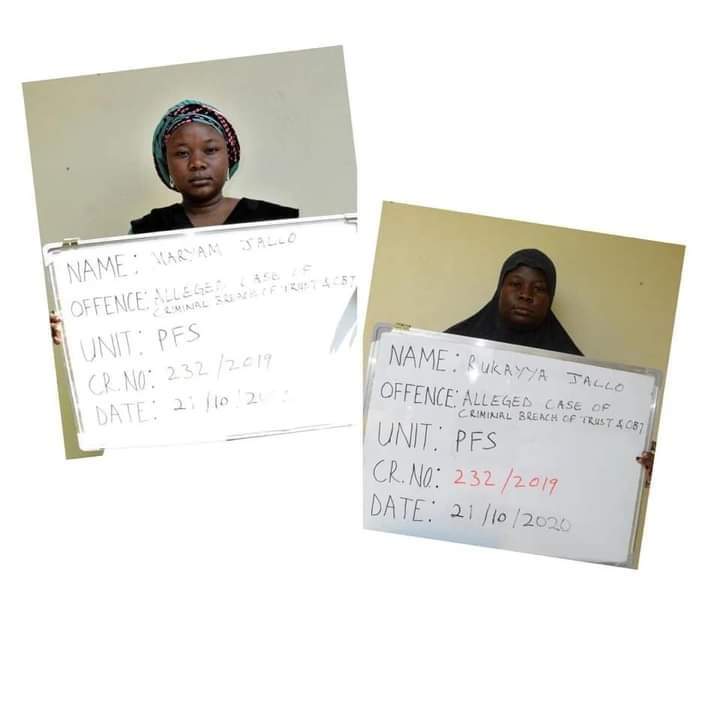 NAME: MARYAM JALLO
OFFENCE: ALLEGED CASE OF
CRIMINAL BREACH OF TRUST & OBT
UNIT: PFS
CR.NO: 232/2019
DATE: 21/10/
NAME: RUKAYYA JALLO
OFFENCE: ALLEGED CASE OF
CRIMINAL BREACH OF TRUST & OBT
UNIT: PFS
CR.NO: 232/2019
DATE: 21/10/2020